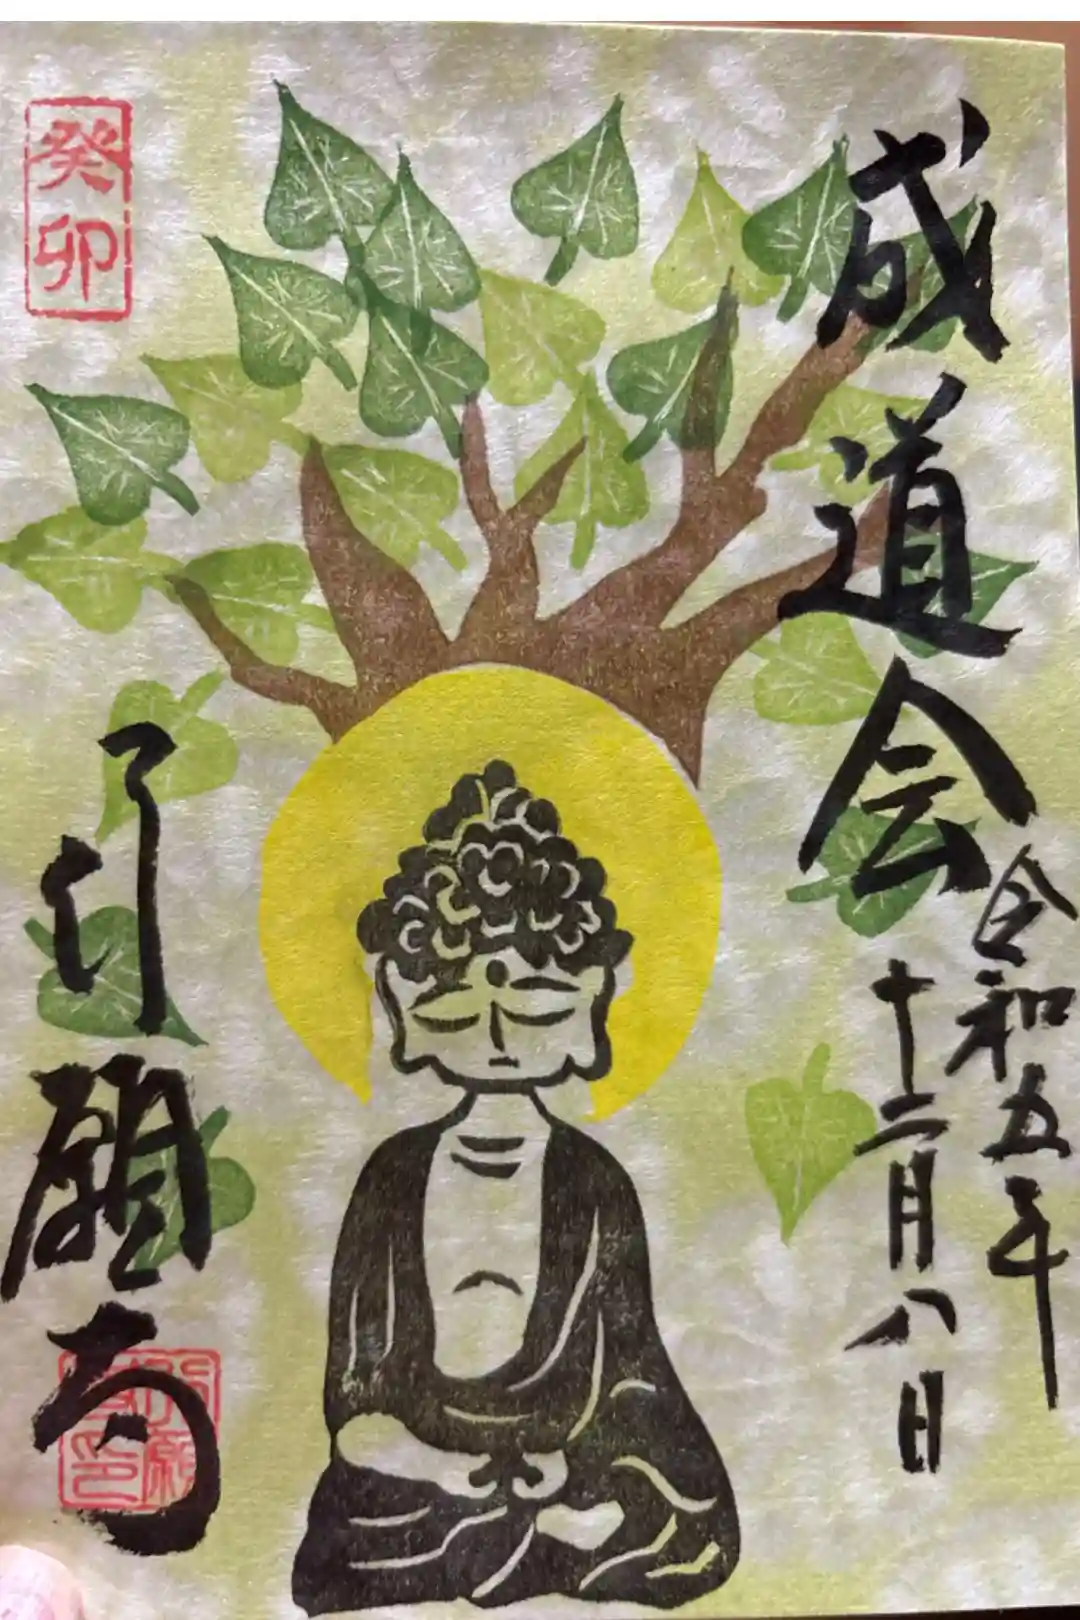 成道会
令和五年
十二月八日
癸卯
願寺